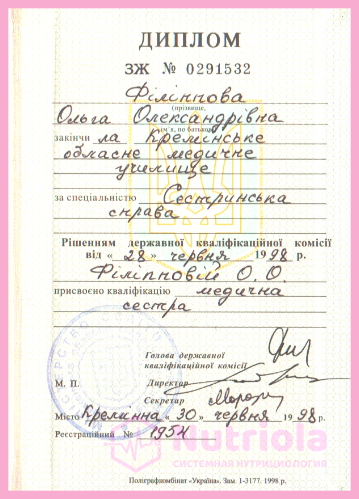 ДИПЛОМ
ЗЖ № 0291532
Філіппова
(прізвище,
Ольга Олександрівна
ім'я, по батькові)
закінчи ла Кремінське
обласне медичне
училище
за спеціальністю Сестринська
справа
Рішенням державної кваліфікаційної комісії
від « 28 » червня 1998 р.
Філіпповій О. О.
присвоєно кваліфікацію медична
сестра
Голова державної
кваліфікаційної комісії
М. П. Директор
Секретар
Місто Кремінна « 30 » червня 1998 р.
Реєстраційний № 1954
Nutriola
СИСТЕМНАЯ НУТРИЦИОЛОГИЯ
Поліграфкомбінат «Україна». Зам. 1-3177. 1998 р.